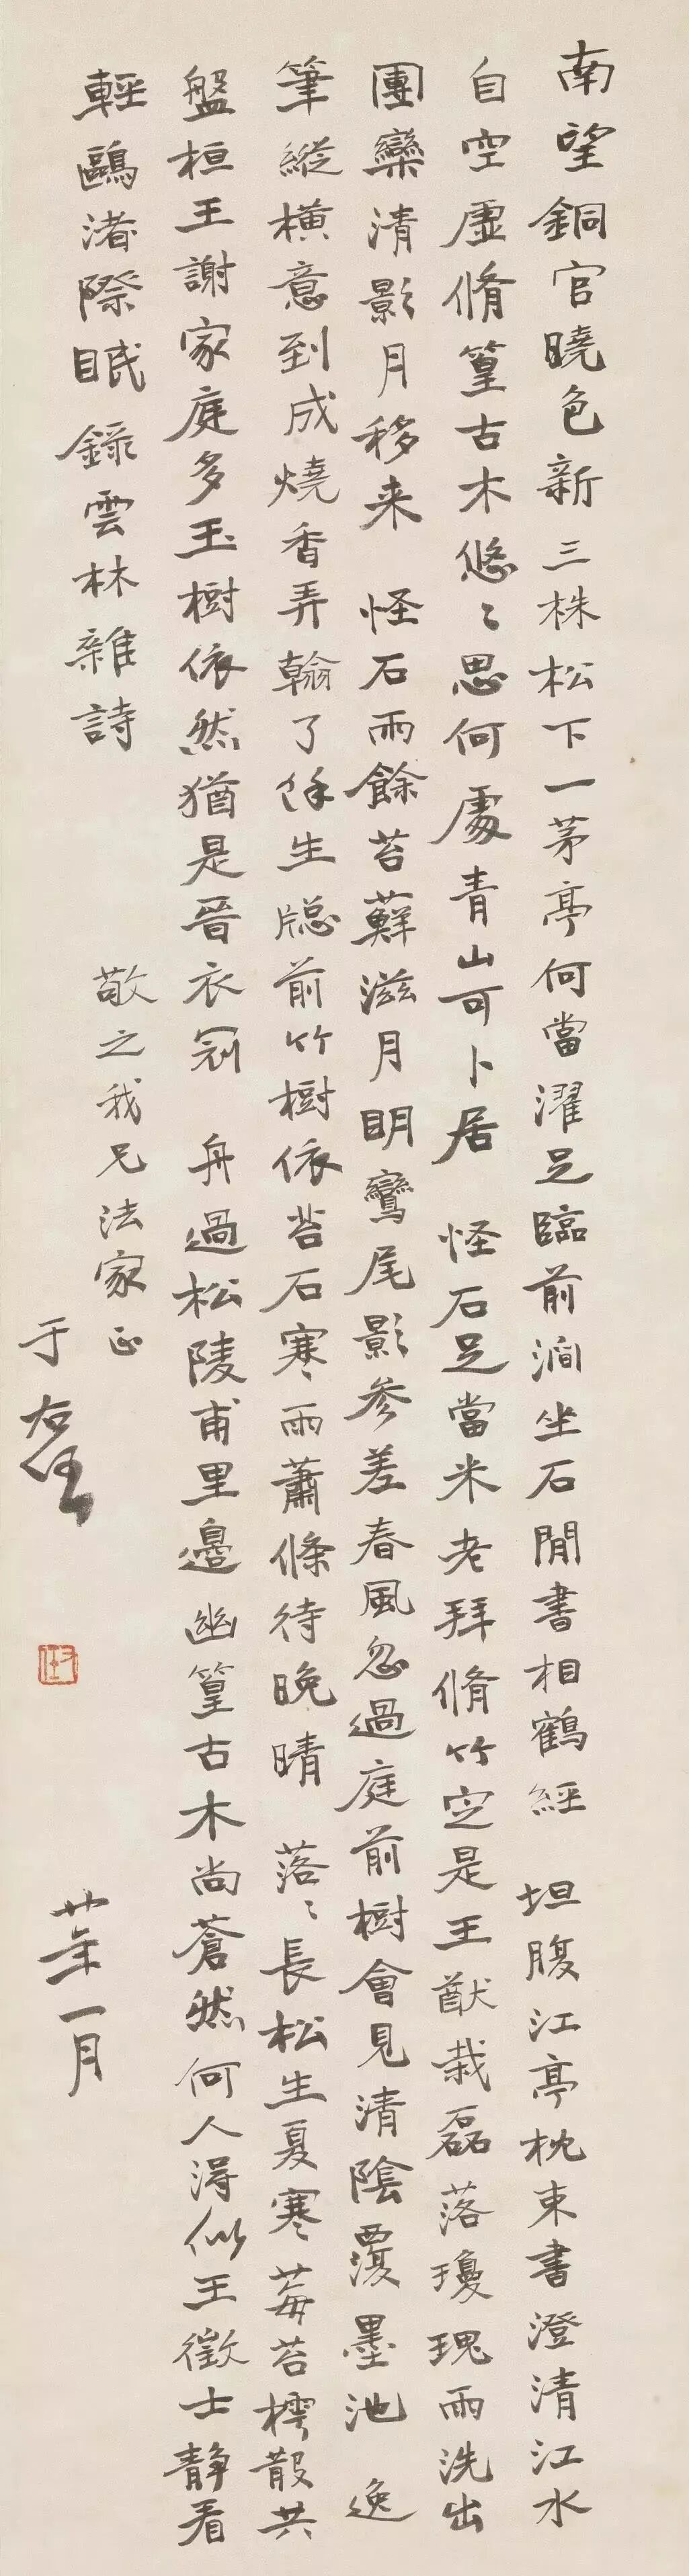 南望銅官曉色新三株松下一茅亭何當濯足臨前澗坐石閒書相鶴經 坦腹江亭枕束書澄清江水
自空虛脩篁古木悠〻思何處青山可卜居 怪石足當米老拜脩竹定是王猷栽磊落瓊瑰雨洗出
團欒清影月移来 怪石雨餘苔蘚滋月明鸞尾影參差春風忽過庭前樹會見清陰覆墨池 逸
筆縱橫意到成燒香弄翰了餘生牕前竹樹依苔石寒雨蕭條待晚晴 落〻長松生夏寒莓苔樗散共
盤桓王謝家庭多玉樹依然猶是晉衣冠 舟過松陵甫里邊幽篁古木尚蒼然何人得似王徵士靜看
輕鷗渚際眠 錄雲林雜詩
敬之我兄法家正
于右任
卅年一月
右任